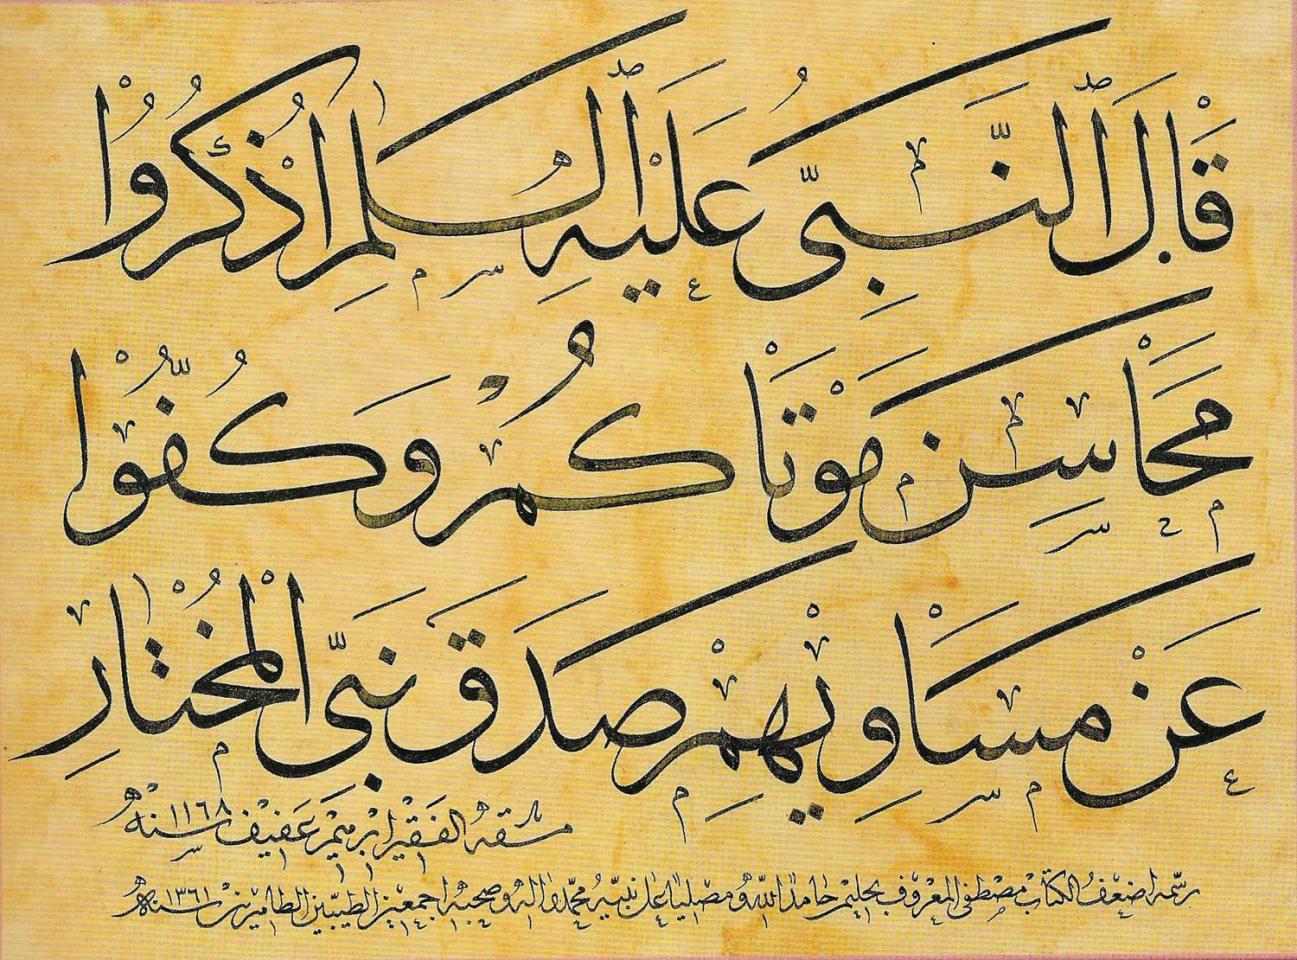 قَالَ ٱلنَّبِىُّ عَلَيْهِ ٱلسَّلَامِ اُذْكُرُوْا
مَحَاسِنَ مَوْتَاكُمْ وَكُفُّوْا
عَنْ مَسَاوِيْهِمْ صَدَقَ نَبِىُّ الْمُخْتَارِ
مشقه الفقير ابرهيم عفيف سنه ١١٦٨
رسمه اضعف الكتاب مصطفى المعروف بحليم حامدا لله ومصليا على نبيه محمد واله وصحبه اجمعين الطيبين الطاهرين سنه ١٣٦١